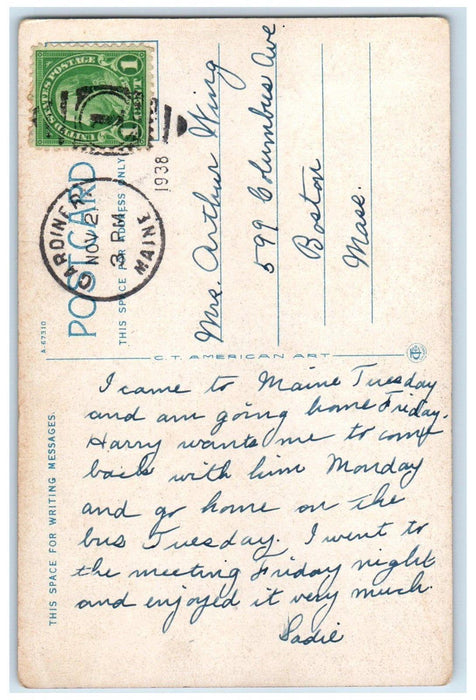 UNITED STATES POSTAGE
1 1
GARDINER
NOV 2
3 PM
MAINE
1938
POSTCARD
THIS SPACE FOR ADDRESS ONLY
A-67310
Mrs. Arthur Wing
599 Columbus Ave
Boston
Mass.
C.T. AMERICAN ART
THIS SPACE FOR WRITING MESSAGES
I came to Maine Tuesday
and am going home Friday.
Harry wants me to come
back with him Monday
and go home on the
bus Tuesday. I went to
the meeting Friday night
and enjoyed it very much.
Sadie